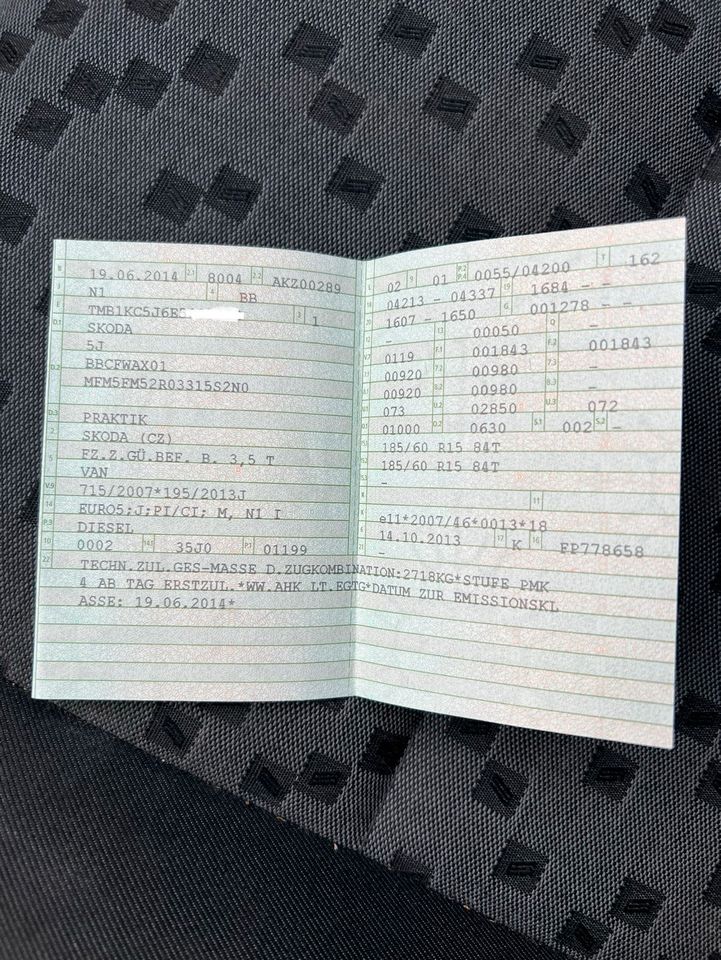 B 19.06.2014 2.1 8004 2.2 AKZ00289
J N1 4 BB
E TMB1KC5J6E 3 1
D.1 SKODA
5J
D.2 BBCFWAX01
MFM5FM52R03315S2N0
D.3 PRAKTIK
2 SKODA (CZ)
5 FZ.Z.GÜ.BEF. B. 3,5 T
VAN
V.9 715/2007*195/2013J
14 EURO5;J;PI/CI; M, N1 I
P.3 DIESEL
10 0002 14.1 35J0 P.1 01199
L 02 9 01 P.2 P.4 0055/04200 T 162
18 04213 - 04337 19 1684 - -
20 1607 - 1650 G 001278 - -
- 13 00050 Q -
V.7 0119 F.1 001843 F.2 001843
7.1 00920 7.2 00980 7.3 -
8.1 00920 8.2 00980 8.3 -
U.1 073 U.2 02850 U.3 072
O.1 01000 O.2 0630 S.1 002 S.2 -
15.1 185/60 R15 84T
15.2 185/60 R15 84T
15.3 -
R 11
K e11*2007/46*0013*18
6 14.10.2013 17 K 16 FP778658
21 -
22 TECHN.ZUL.GES-MASSE D.ZUGKOMBINATION:2718KG*STUFE PMK
4 AB TAG ERSTZUL.*WW.AHK LT.EGTG*DATUM ZUR EMISSIONSKL
ASSE: 19.06.2014*